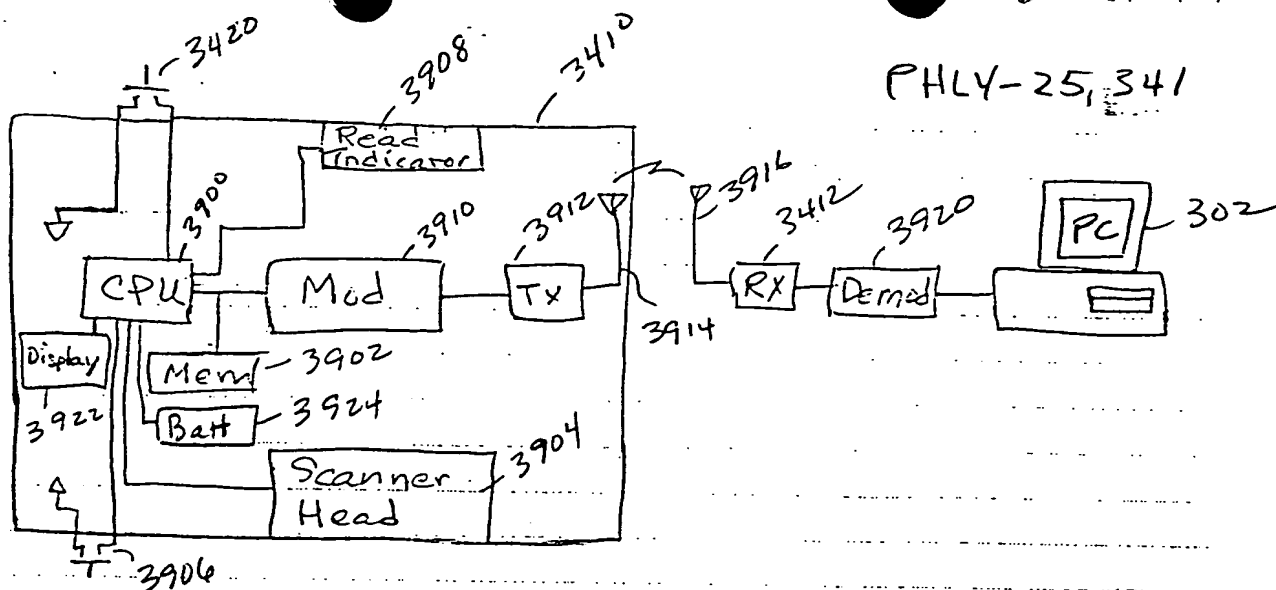 PHLY-25,341
3420
3908
3410
Read
Indicator
3900
3910
3912
3916
3412
3920
302
CPU
Mod
TX
RX
Demod
PC
3914
Display
Mem
3902
3922
Batt
3924
3904
Scanner
Head
3906